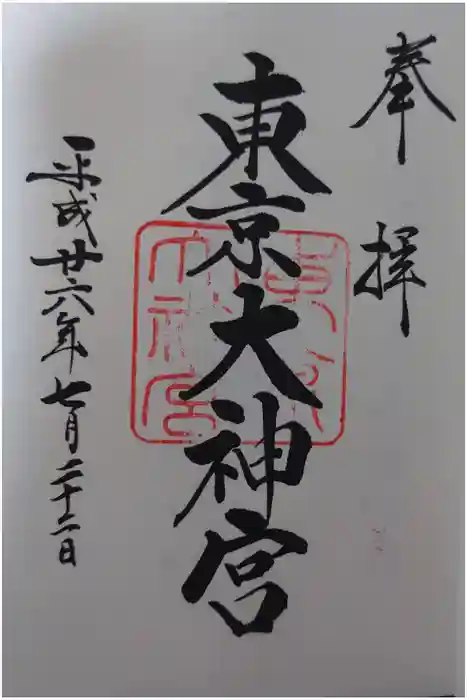 奉拝
東京大神宮
東京大神宮
平成廿六年七月二十二日